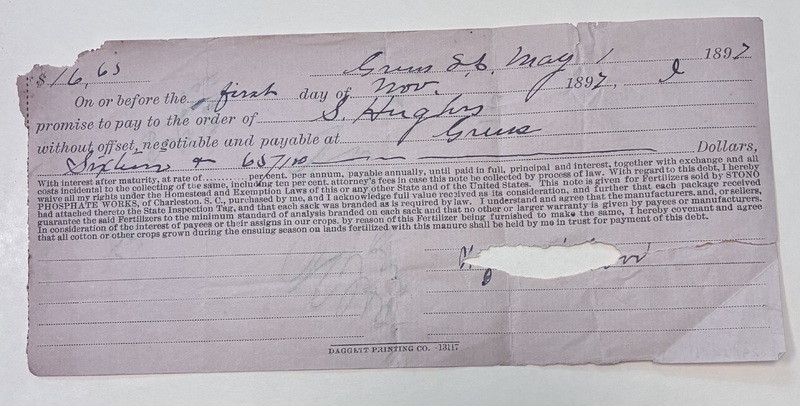 $16,65
Greers S.C. May 1 1897
On or before the first day of Nov. 1897, I
promise to pay to the order of S. Hughes
without offset, negotiable and payable at Greers
Sixteen & 65/100 Dollars,
With interest after maturity, at rate of ........ per cent. per annum, payable annually, until paid in full, principal and interest, together with exchange and all
costs incidental to the collecting of the same, including ten per cent. attorney's fees in case this note be collected by process of law. With regard to this debt, I hereby
waive all my rights under the Homestead and Exemption Laws of this or any other State and of the United States. This note is given for Fertilizers sold by STONO
PHOSPHATE WORKS, of Charleston, S. C., purchased by me, and I acknowledge full value received as its consideration, and further that each package received
had attached thereto the State Inspection Tag, and that each sack was branded as is required by law. I understand and agree that the manufacturers, and, or sellers,
guarantee the said Fertilizers to the minimum standard of analysis branded on each sack and that no other or larger warranty is given by payees or manufacturers.
In consideration of the interest of payees or their assigns in our crops, by reason of this Fertilizer being furnished to make the same, I hereby covenant and agree
that all cotton or other crops grown during the ensuing season on lands fertilized with this manure shall be held by me in trust for payment of this debt.
DAGGETT PRINTING CO. -13117